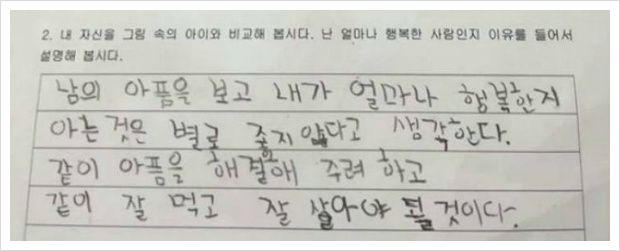 2. 내 자신을 그림 속의 아이와 비교해 봅시다. 난 얼마나 행복한 사람인지 이유를 들어서
설명해 봅시다.
남의 아픔을 보고 내가 얼마나 행복한지
아는 것은 별로 좋지 않다고 생각한다.
같이 아픔을 해결해 주려 하고
같이 잘 먹고 잘 살아야 될 것이다.